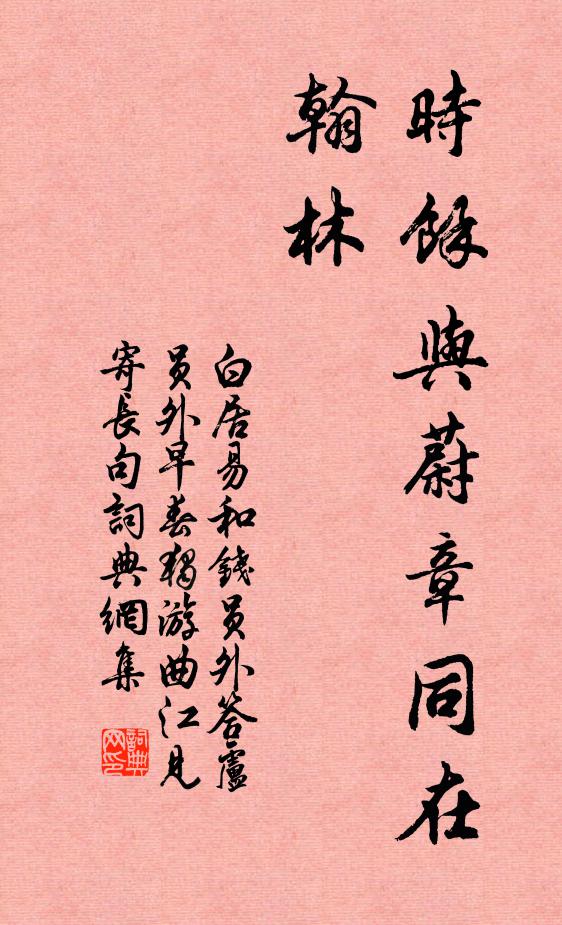 時餘與蔚章同在
翰林
白居易和錢員外答盧
員外早春獨游曲江見
寄長句詞典網集
詞典
网印